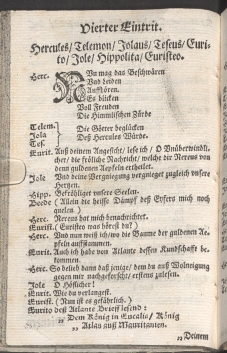 Vierter Eintrit.
Hercules/ Telemon/ Jolaus/ Teseus/ Euri-
to/ Jole/ Hippolita/ Euristeo.
Herc. NUn mag das Beschwären
Und Leiden
Auffhören.
Es blicken
Voll Freuden
Die Himmlischen Zürde
Telem.
Jola
Tes.
Die Götter beglücken
Deß Hercules Würde.
Eurit. Auß deinem Angesicht/ lese ich/ O Unüberwindli-
cher/ die frölige Nachricht/ welche die Nereus von
denen guldenen Aepfeln ertheilet.
Jole Und deine Vergniegung vergnieget zugleich unsere
Hertzen.
Hipp. Befräligket unsere Seelen.
Beede (Allein die heisse Dämpf deß Eyfers mich noch
quelen)
Herc. Nereus hat mich benachrichtet.
Eurist. Was hörest du?
Herc. Und nun weiß ich/ wo die Baume der guldenen Ae-
pfeln auffstammen.
Eurit. Auch ich habe von Atlante dessen Kundschafft be-
kommen.
Herc. So belieb dann daß jenige/ dem du auß Wolneigung
gegen mir nachgeforschet/ erstens zulesen.
Jole O Höflicher!
Eurit. Wie du verlangest.
Eurist. (Nun ist es gefährlich.)
Eurito deß Atlante Brieff lesend:
„ Dem König in Eucalia/ König
„ Atlas auß Mauritanien.
„ Deinem